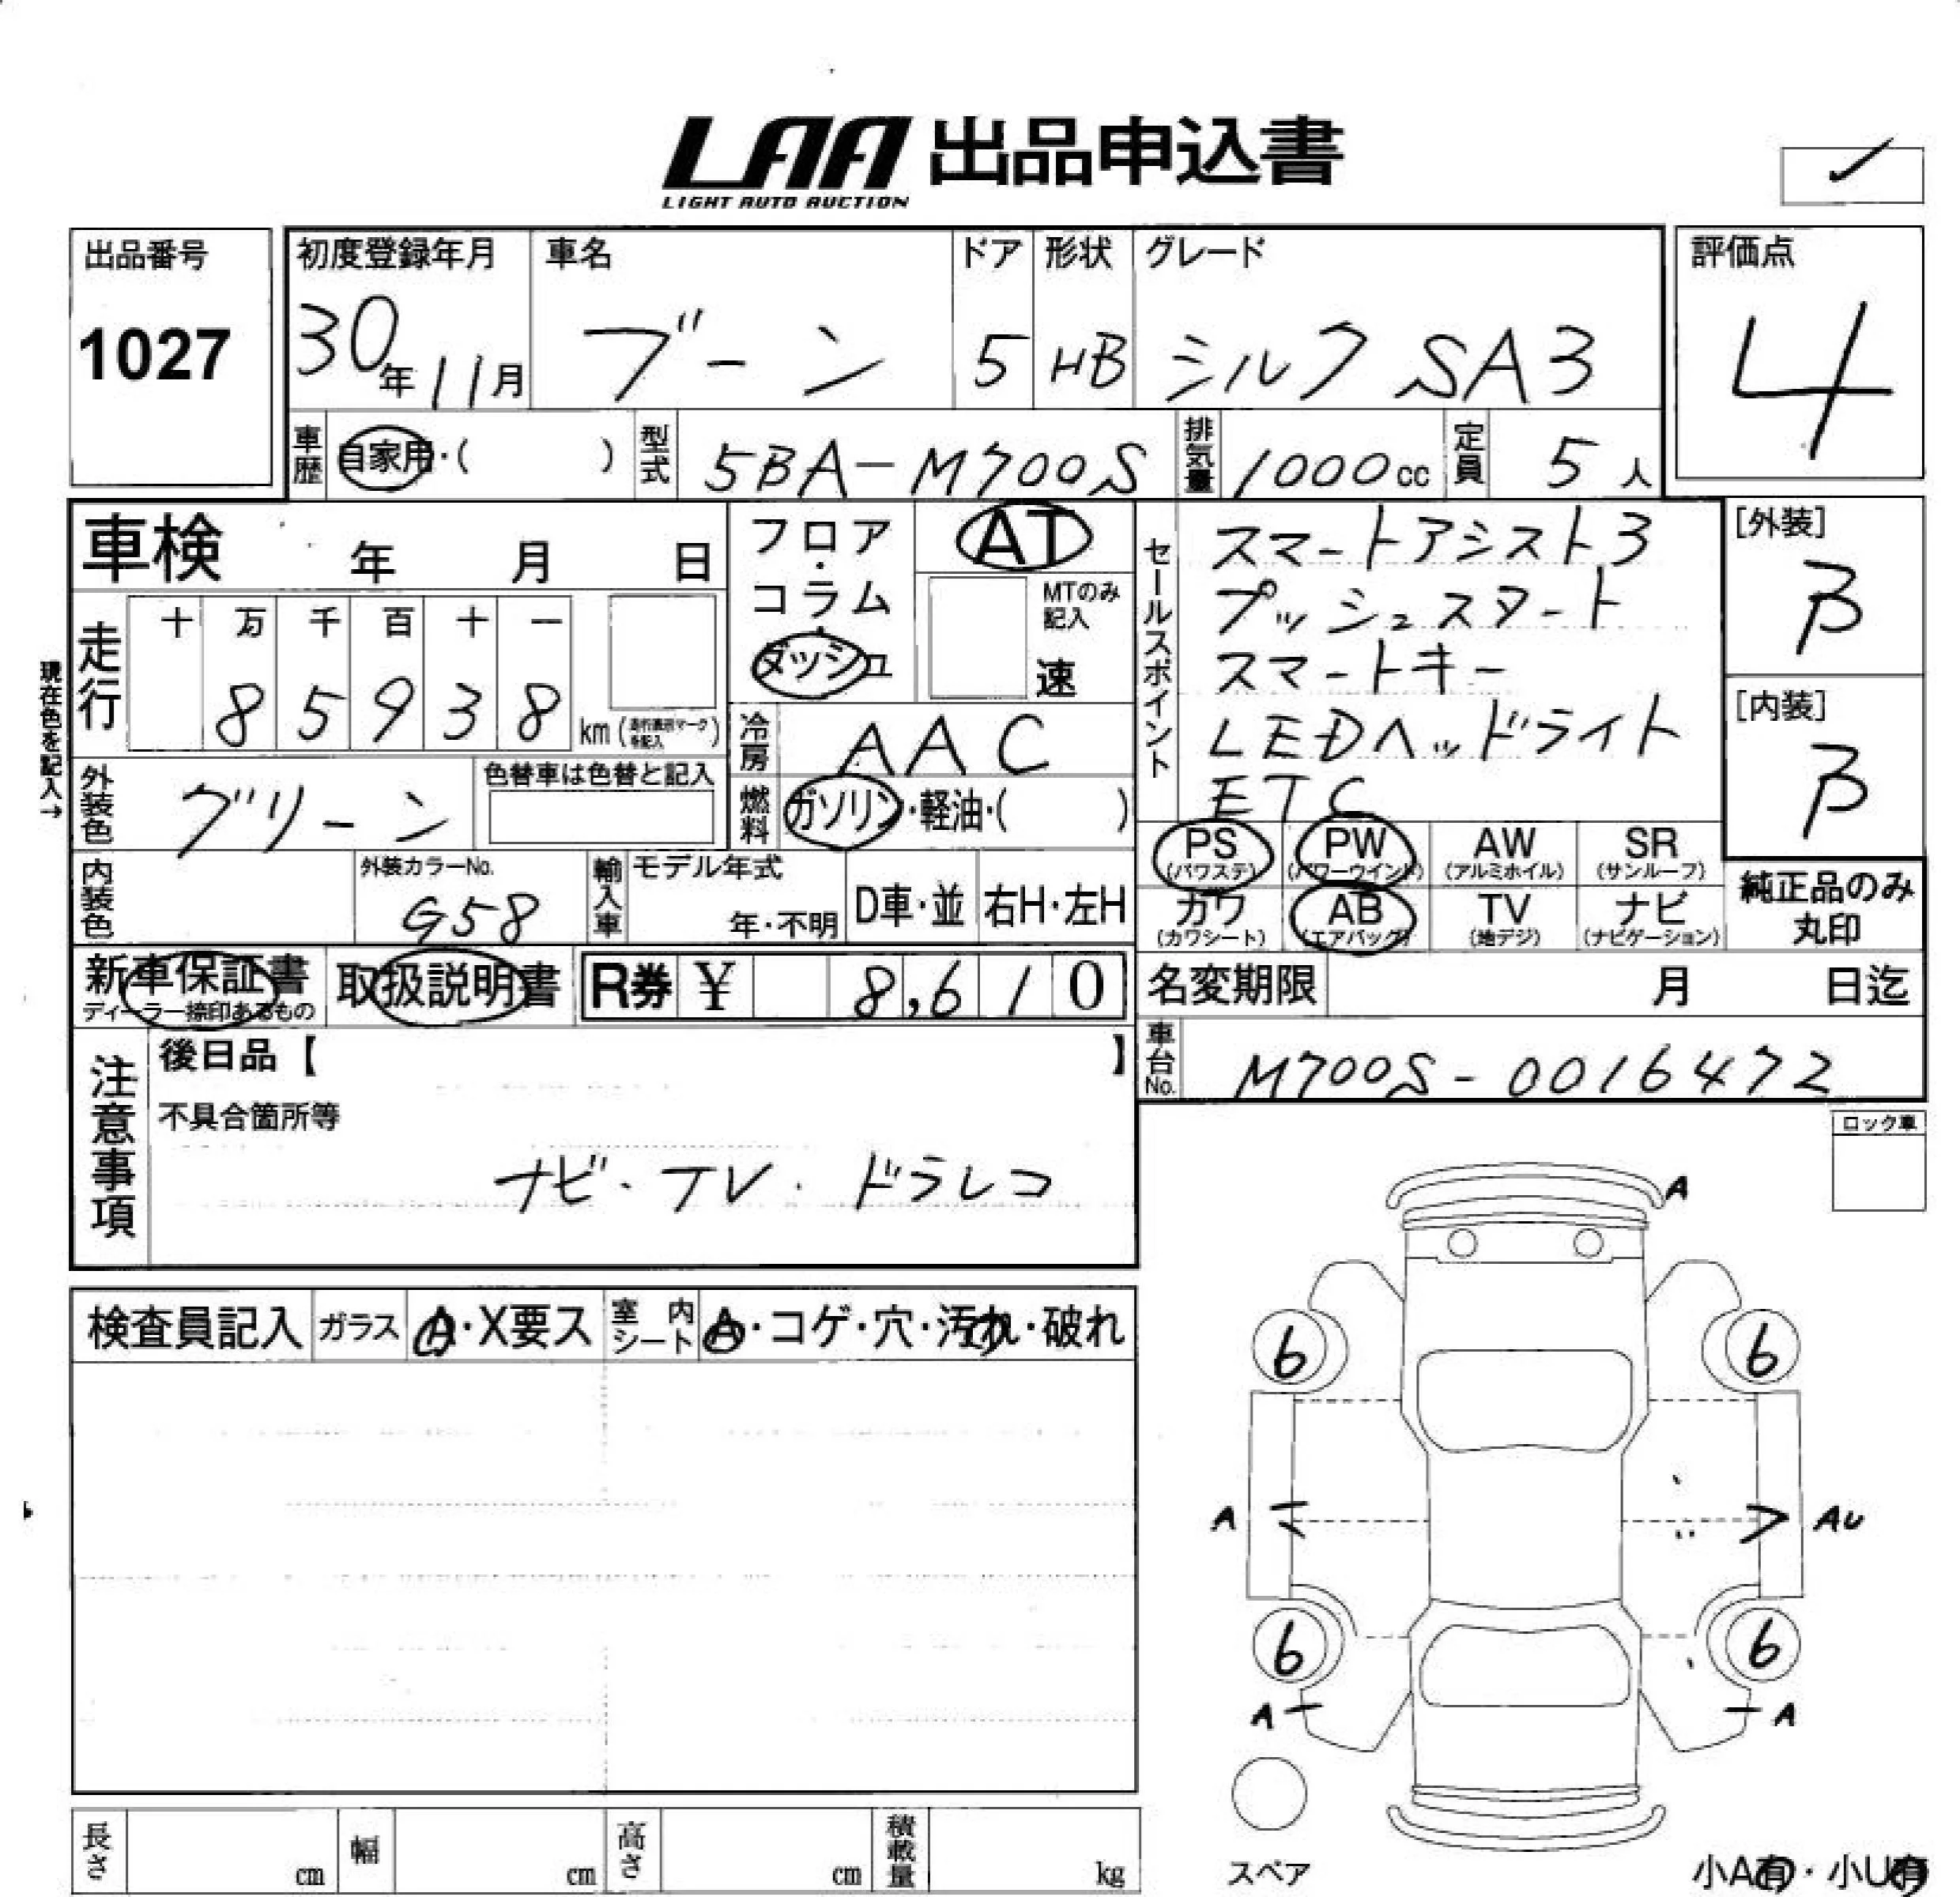 LAA 出品申込書
LIGHT AUTO AUCTION
出品番号
1027
初度登録年月
30年11月
車名
ブーン
ドア
5
形状
HB
グレード
シルク SA3
評価点
4
車歴 自家用・( )
型式 5BA-M700S
排気量 1000cc
定員 5人
車検 年 月 日
フロア・コラム・ダッシュ
AT
MTのみ記入
速
セールスポイント
スマートアシスト3
プッシュスタート
スマートキー
LEDヘッドライト
ETC
[外装]
B
[内装]
B
現在色を記入→
走行
十 万 千 百 十 一
8 5 9 3 8 km
冷房 AAC
燃料 ガソリン・軽油・( )
外装色 グリーン
色替車は色替と記入
内装色
外装カラーNo.
G58
輸入車
モデル年式
年・不明
D車・並
右H・左H
PS (パワステ)
PW (パワーウインド)
AW (アルミホイル)
SR (サンルーフ)
カワ (カワシート)
AB (エアバッグ)
TV (地デジ)
ナビ (ナビゲーション)
純正品のみ
丸印
新車保証書
ディーラー捺印あるもの
取扱説明書
R券 ¥ 8,610
名変期限 月 日迄
車台No. M700S-0016472
注意事項
後日品【 】
不具合箇所等
ナビ・TV・ドラレコ
ロック車
検査員記入
ガラス A・X要ス
室内シート A・コゲ・穴・汚れ・破れ
A
6
6
A
AU
6
6
A
A
スペア
小A有・小U有
長さ cm
幅 cm
高さ cm
積載量 kg